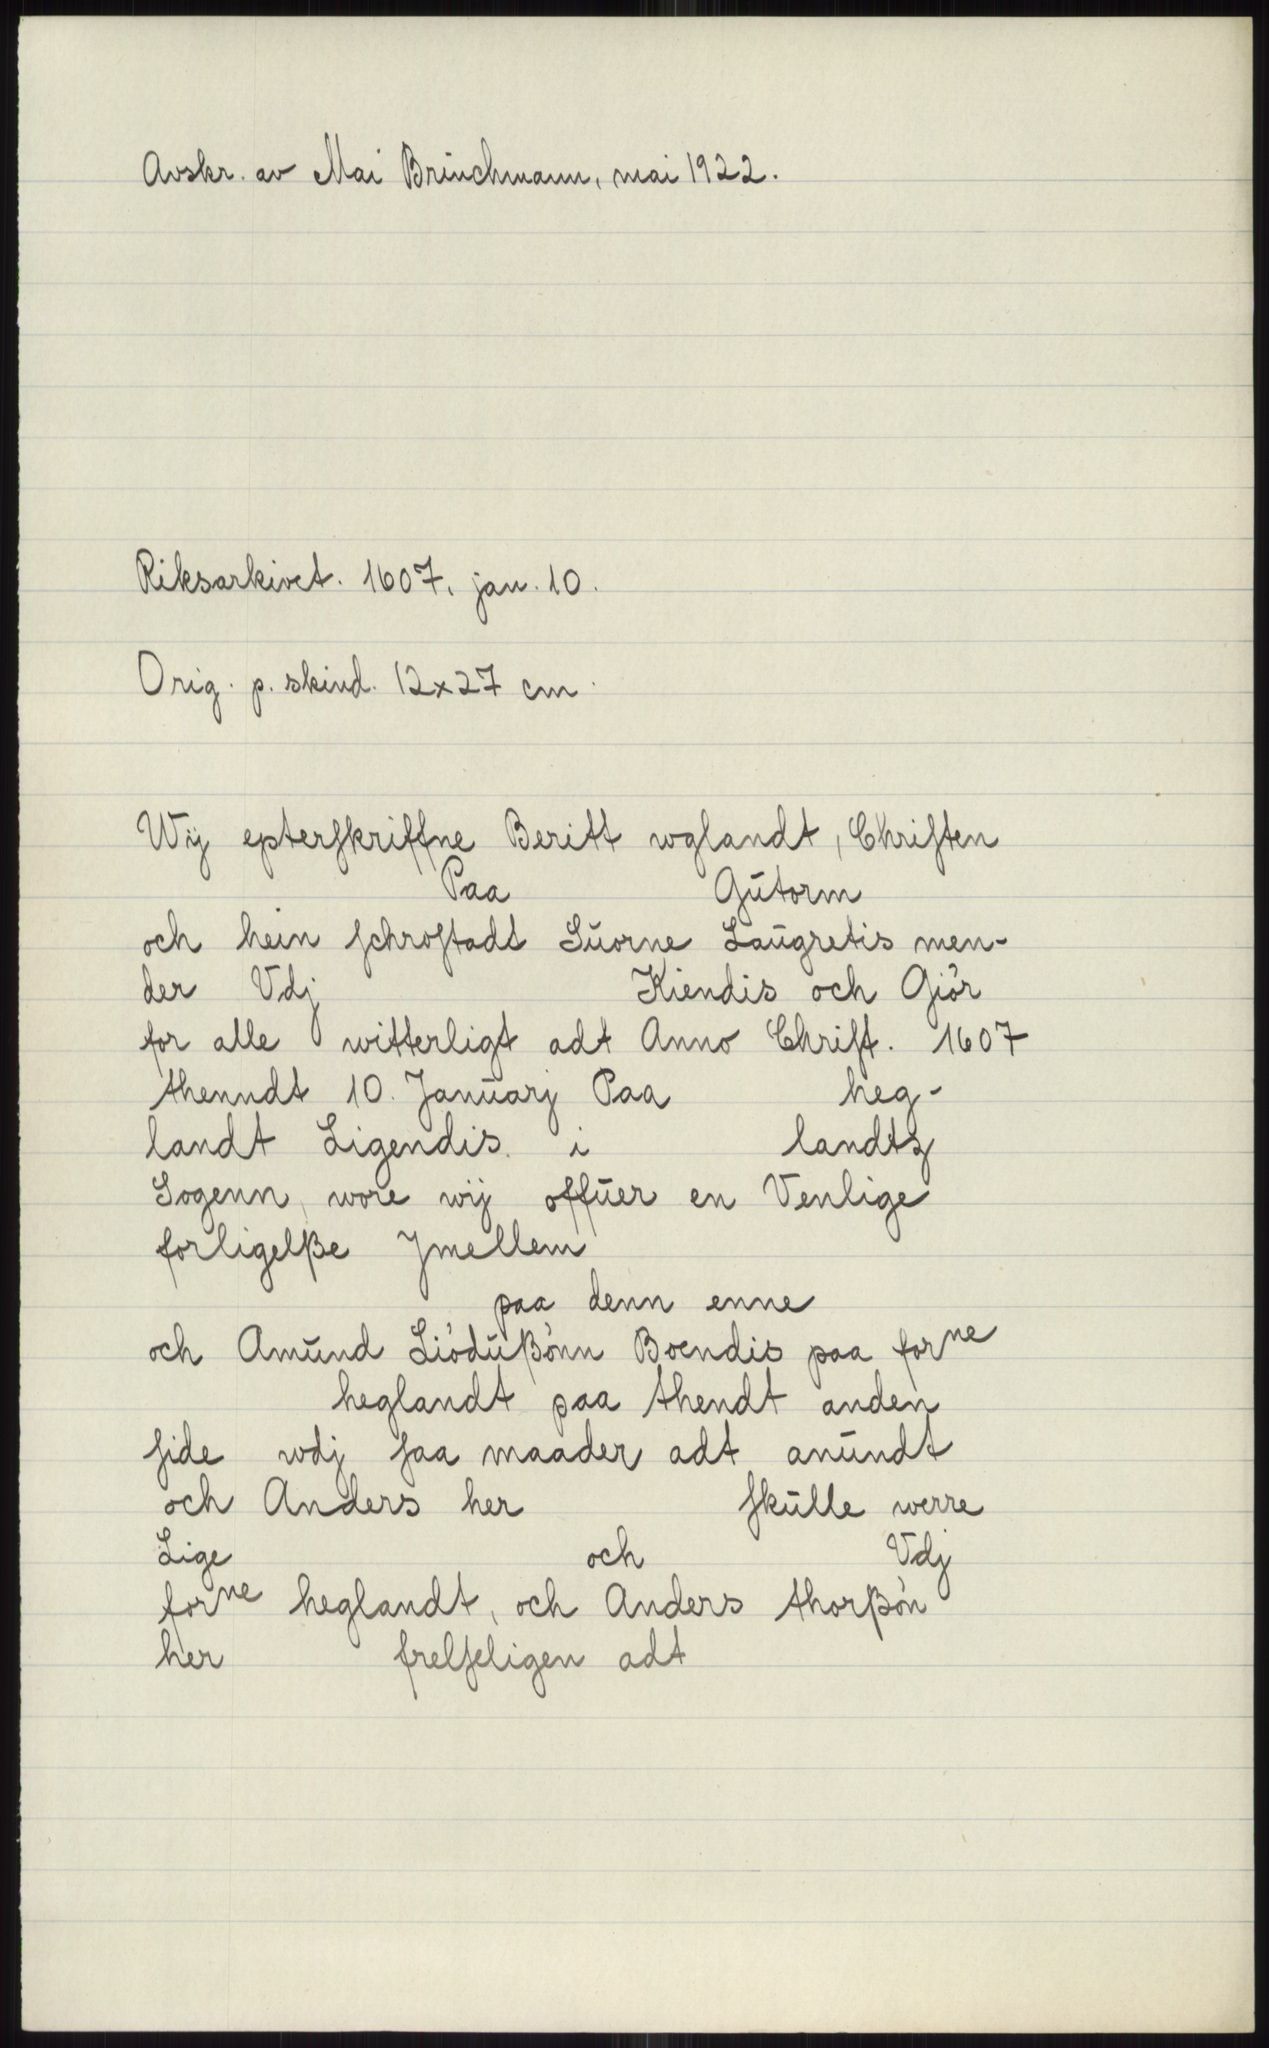 Avskr. av Mai Brinchmann, mai 1922.
Riksarkivet. 1607, jan. 10.
Orig. p. skind. 12x27 cm.
Wij epterſkriffne Beritt wglandt, Chriſten
Paa Gūtorm
och hein ſchroſtadt Sūorne Laūgretis men-
der Vdj Kiendis och Giör
for alle witterligt adt Anno Chriſt. 1607
thenndt 10. Janūarj Paa heg-
landt Ligendis i landtz
Sogenn, wore wij offūer en Venlige
forligelße Jmellem
paa denn enne
och Amūnd Liödūßönn Boendis paa forne
heglandt paa thendt anden
ſide wdj ſaa maader adt anūndt
och Anders her ſkūlle werre
Lige och Vdj
forne heglandt, och Anders thorßön
her frelſeligen adt